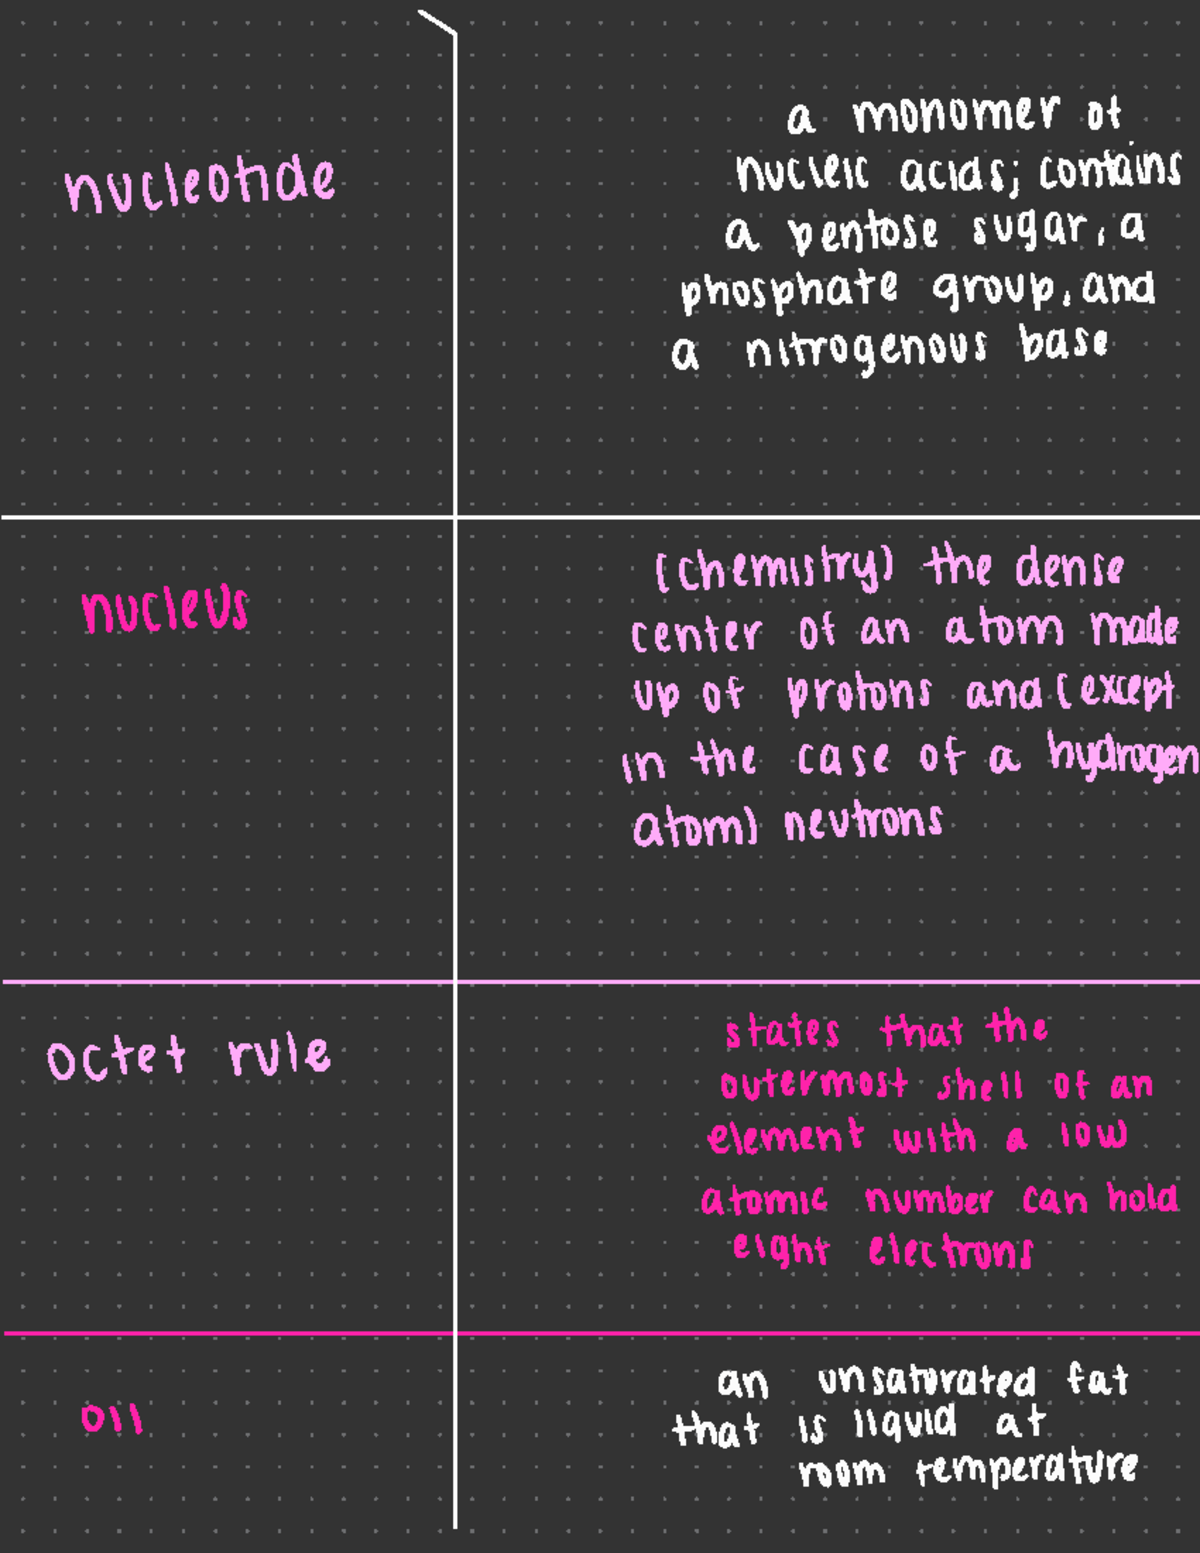 nucleotide
a monomer of
nucleic acids; contains
a pentose sugar, a
phosphate group, and
a nitrogenous base
nucleus
(chemistry) the dense
center of an atom made
up of protons and (except
in the case of a hydrogen
atom) neutrons
octet rule
states that the
outermost shell of an
element with a low
atomic number can hold
eight electrons
oil
an unsaturated fat
that is liquid at
room temperature